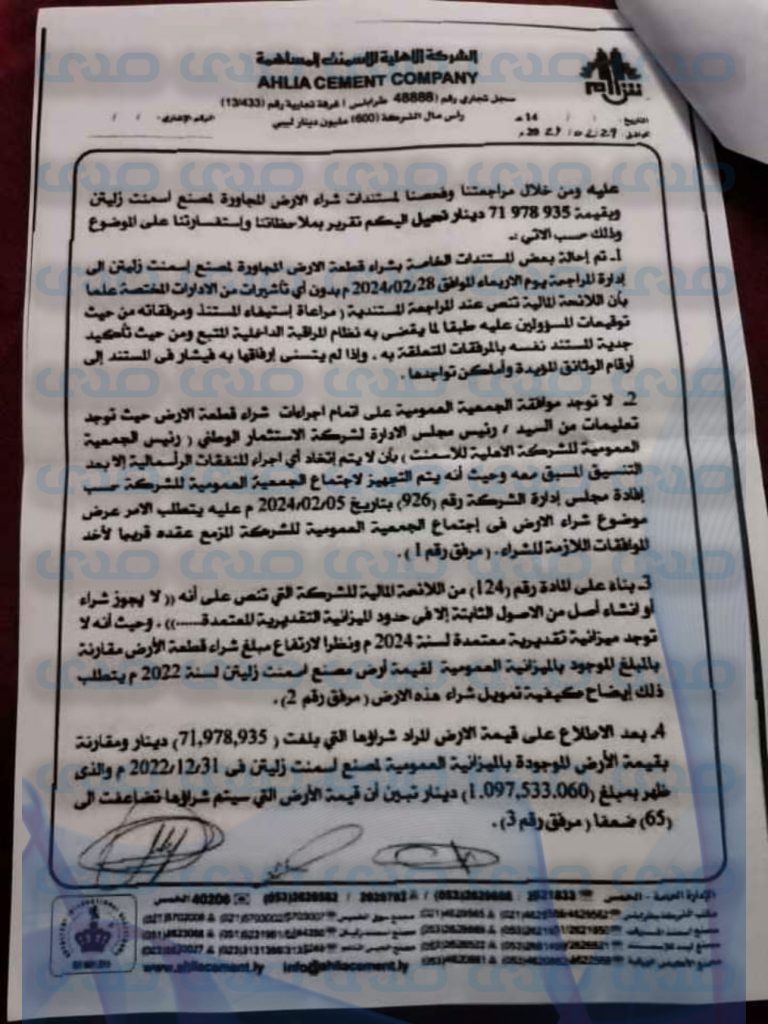 الشركة الاهلية للاسمنت المساهمة
AHLIA CEMENT COMPANY
سجل تجاري رقم (48888) طرابلس / غرفة تجارية رقم (13/433)
رأس مال الشركة (600) مليون دينار ليبي
التاريخ: / / 14 هـ
الموافق
الرقم الإشاري: / /
عليه ومن خلال مراجعتنا وفحصنا لمستندات شراء الارض المجاورة لمصنع اسمنت زليتن
وبقيمة 935 978 71 دينار نحيل اليكم تقرير بملاحظاتنا وإستفسارتنا على الموضوع
وذلك حسب الاتي :-
1- تم إحالة بعض المستندات الخاصة بشراء قطعة الارض المجاورة لمصنع إسمنت زليتن الى
إدارة المراجعة يوم الاربعاء الموافق 2024/02/28 م بدون أي تأشيرات من الادارات المختصة علما
بأن اللائحة المالية تنص عند المراجعة المستندية ( مراعاة إستيفاء المستند ومرفقاته من حيث
توقيعات المسؤولين عليه طبقا لما يقضى به نظام المراقبة الداخلية المتبع ومن حيث تأكيد
جدية المستند نفسه بالمرفقات المتعلقة به ، وإذا لم يتسنى إرفاقها به فيشار فى المستند إلى
أرقام الوثائق المؤيدة وأماكن تواجدها .
2. لا توجد موافقة الجمعية العمومية على اتمام اجراءات شراء قطعة الارض حيث توجد
تعليمات من السيد / رئيس مجلس الادارة لشركة الاستثمار الوطني ( رئيس الجمعية
العمومية للشركة الاهلية للاسمنت ) بأن لا يتم إتخاذ أي اجراء للنفقات الرأسمالية إلا بعد
التنسيق المسبق معه وحيث أنه يتم التجهيز لاجتماع الجمعية العمومية للشركة حسب
إفادة مجلس إدارة الشركة رقم (926) بتاريخ 2024/02/05 م عليه يتطلب الامر عرض
موضوع شراء الارض فى إجتماع الجمعية العمومية للشركة المزمع عقده قريبا لأخد
الموافقات اللازمة للشراء . ( مرفق رقم 1 ) .
3. بناء على المادة رقم (124) من اللائحة المالية للشركة التي تنص على أنه (( لا يجوز شراء
أو انشاء أصل من الاصول الثابتة إلا فى حدود الميزانية التقديرية المعتمدة .....)) . وحيث أنه لا
توجد ميزانية تقديرية معتمدة لسنة 2024 م ونظرا لارتفاع مبلغ شراء قطعة الأرض مقارنة
بالمبلغ الموجود بالميزانية العمومية لقيمة أرض مصنع اسمنت زليتن لسنة 2022 م يتطلب
ذلك إيضاح كيفية تمويل شراء هذه الارض ( مرفق رقم 2 ) .
4. بعد الاطلاع على قيمة الارض المراد شراؤها التي بلغت ( 71,978,935) دينار ومقارنة
بقيمة الأرض الموجودة بالميزانية العمومية لمصنع أسمنت زليتن فى 2022/12/31 م والذى
ظهر بمبلغ (1.097,533.060) دينار تبين أن قيمة الأرض التي سيتم شراؤها تضاعفت الى
(65) ضعفا ( مرفق رقم 3 ) .
الإدارة العامة - الخمس
40206 الخمس
www.ahliacement.ly info@ahliacement.ly
صدى